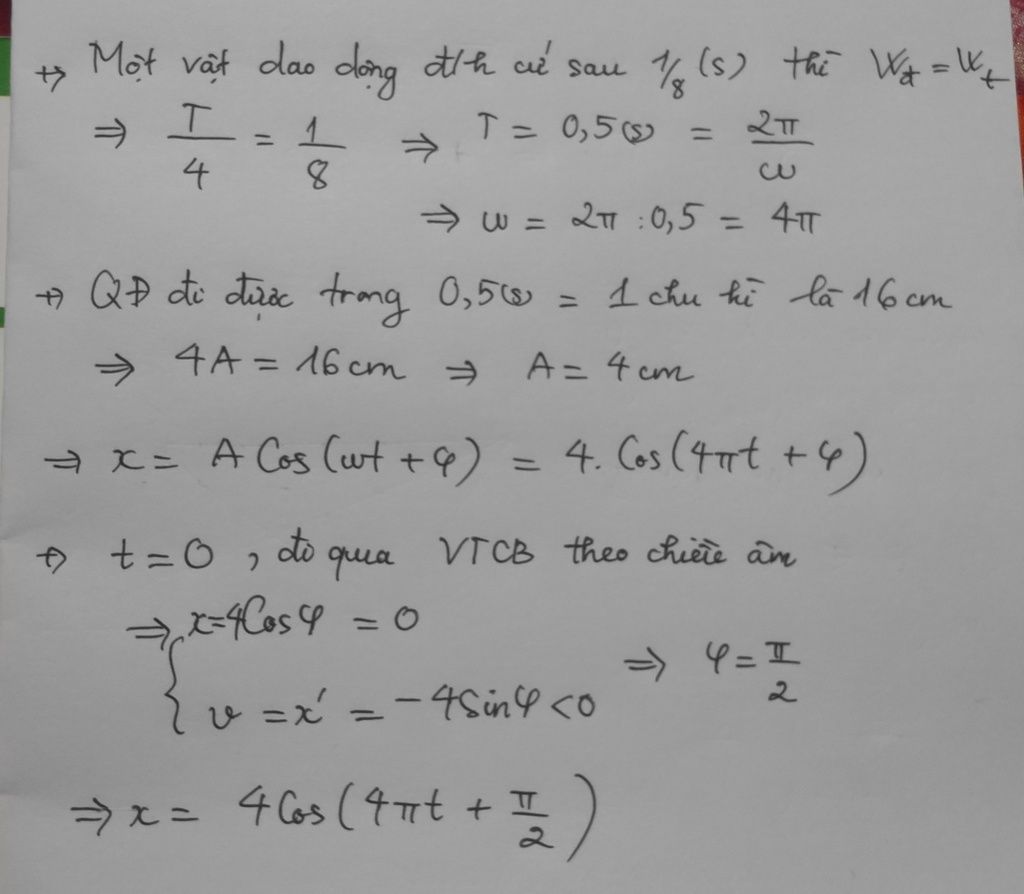 +) Một vật dao động đ/h cứ sau 1/8 (s) thì Wđ = Wt
⇒ T/4 = 1/8 ⇒ T = 0,5(s) = 2π/ω
⇒ ω = 2π : 0,5 = 4π
+) QĐ đi được trong 0,5(s) = 1 chu kì là 16 cm
⇒ 4A = 16 cm ⇒ A = 4 cm
⇒ x = A Cos(ωt + φ) = 4. Cos(4πt + φ)
+) t = 0, đi qua VTCB theo chiều âm
⇒ { x = 4Cosφ = 0
v = x' = -4Sinφ < 0 ⇒ φ = π/2
⇒ x = 4 Cos(4πt + π/2)